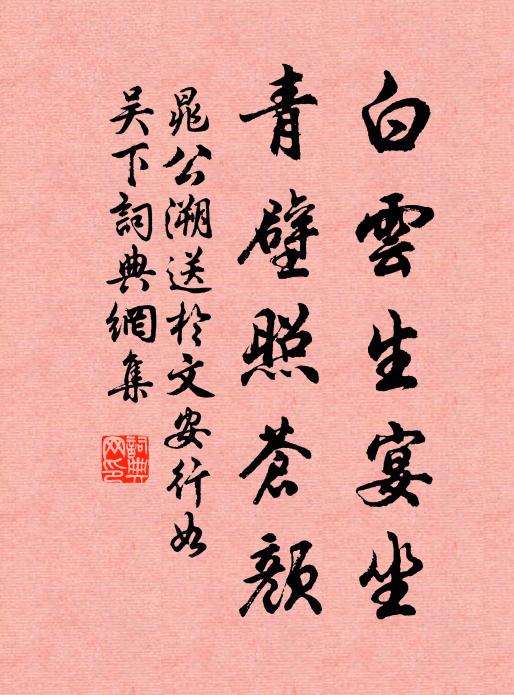 白雲生宴坐
青壁照蒼顏
晁公溯送於文安行如
吴下詞典網集
詞典網印